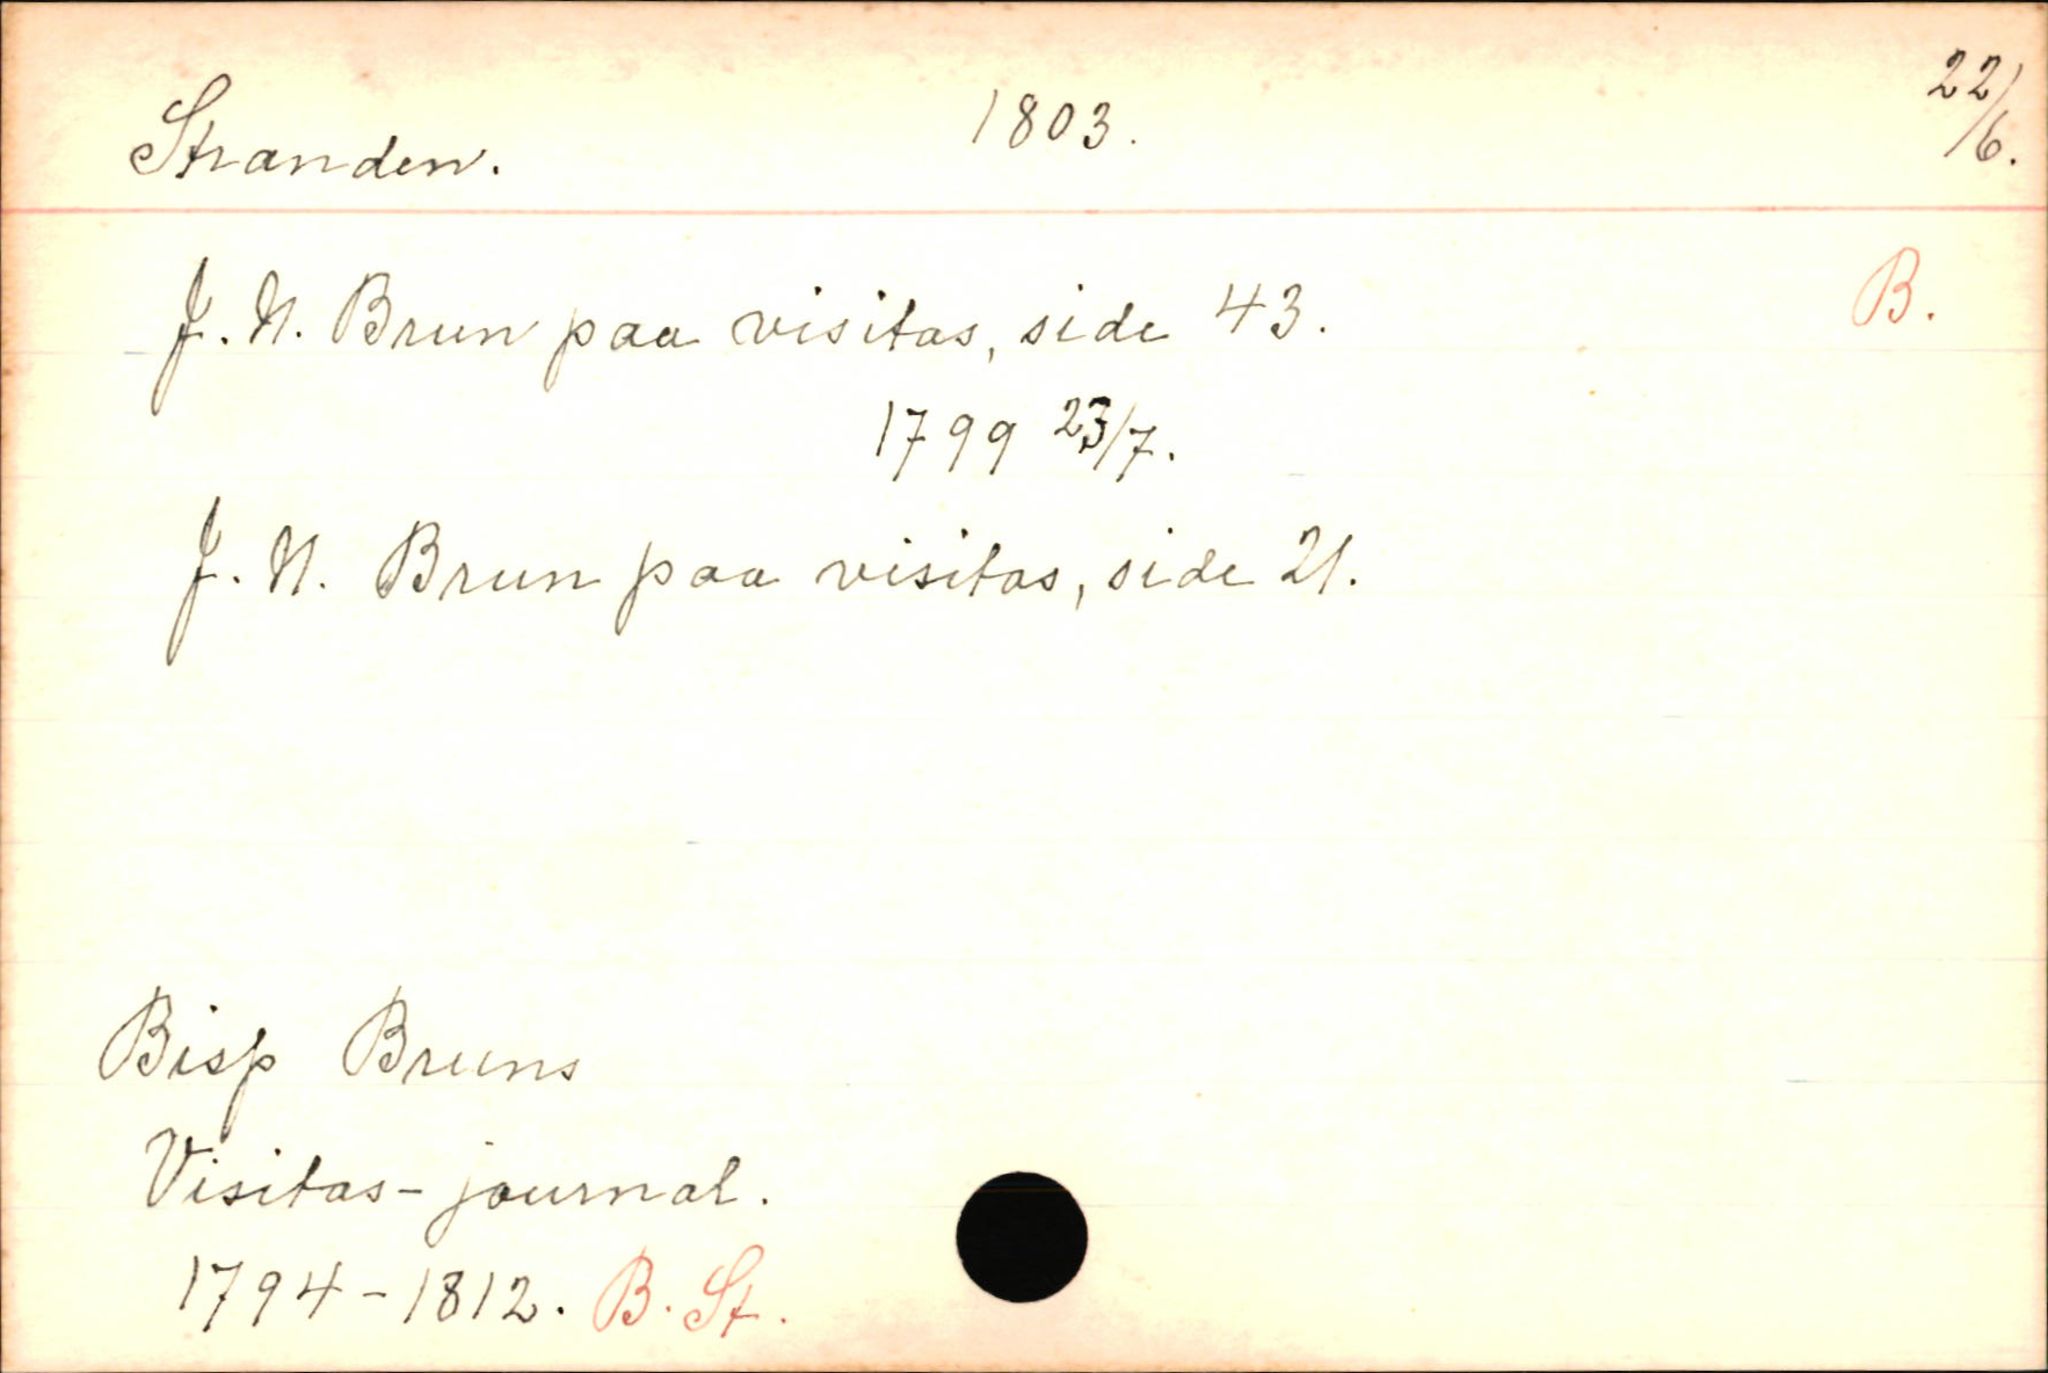 Stranden. 1803. 22/6.
J. N. Brun paa visitas, side 43. B.
1799 23/7.
J. N. Brun paa visitas, side 21.
Bisp Bruns
Visitas-journal.
1794-1812. B. St.